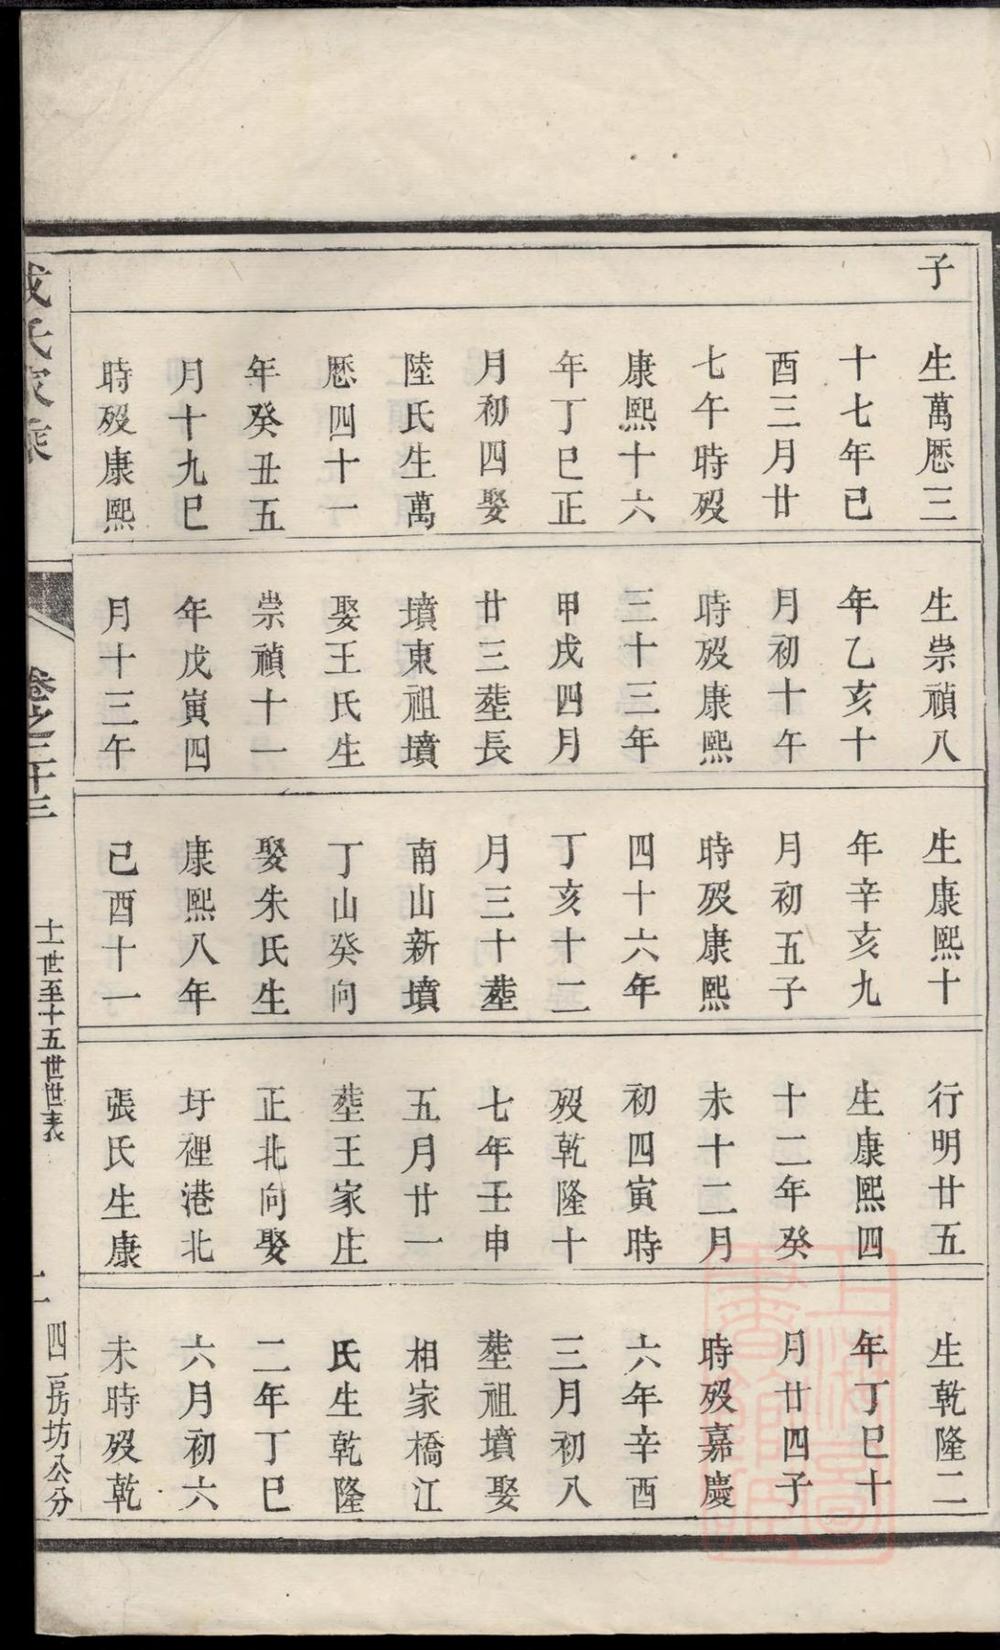 子
生萬厯三
十七年己
酉三月廿
七午時歿
康熙十六
年丁巳正
月初四娶
陸氏生萬
厯四十一
年癸丑五
月十九巳
時歿康熙
生崇禎八
年乙亥十
月初十午
時歿康熙
三十三年
甲戌四月
廿三塟長
墳東祖墳
娶王氏生
崇禎十一
年戊寅四
月十三午
生康熙十
年辛亥九
月初五子
時歿康熙
四十六年
丁亥十二
月三十塟
南山新墳
丁山癸向
娶朱氏生
康熙八年
己酉十一
行明廿五
生康熙四
十二年癸
未十二月
初四寅時
歿乾隆十
七年壬申
五月廿一
塟王家庄
正北向娶
圩裡港北
張氏生康
生乾隆二
年丁巳十
月廿四子
時歿嘉慶
六年辛酉
三月初八
塟祖墳娶
相家橋江
氏生乾隆
二年丁巳
六月初六
未時歿乾
氏家乘
卷之二十三
十一世至十五世世表
四房坊公分